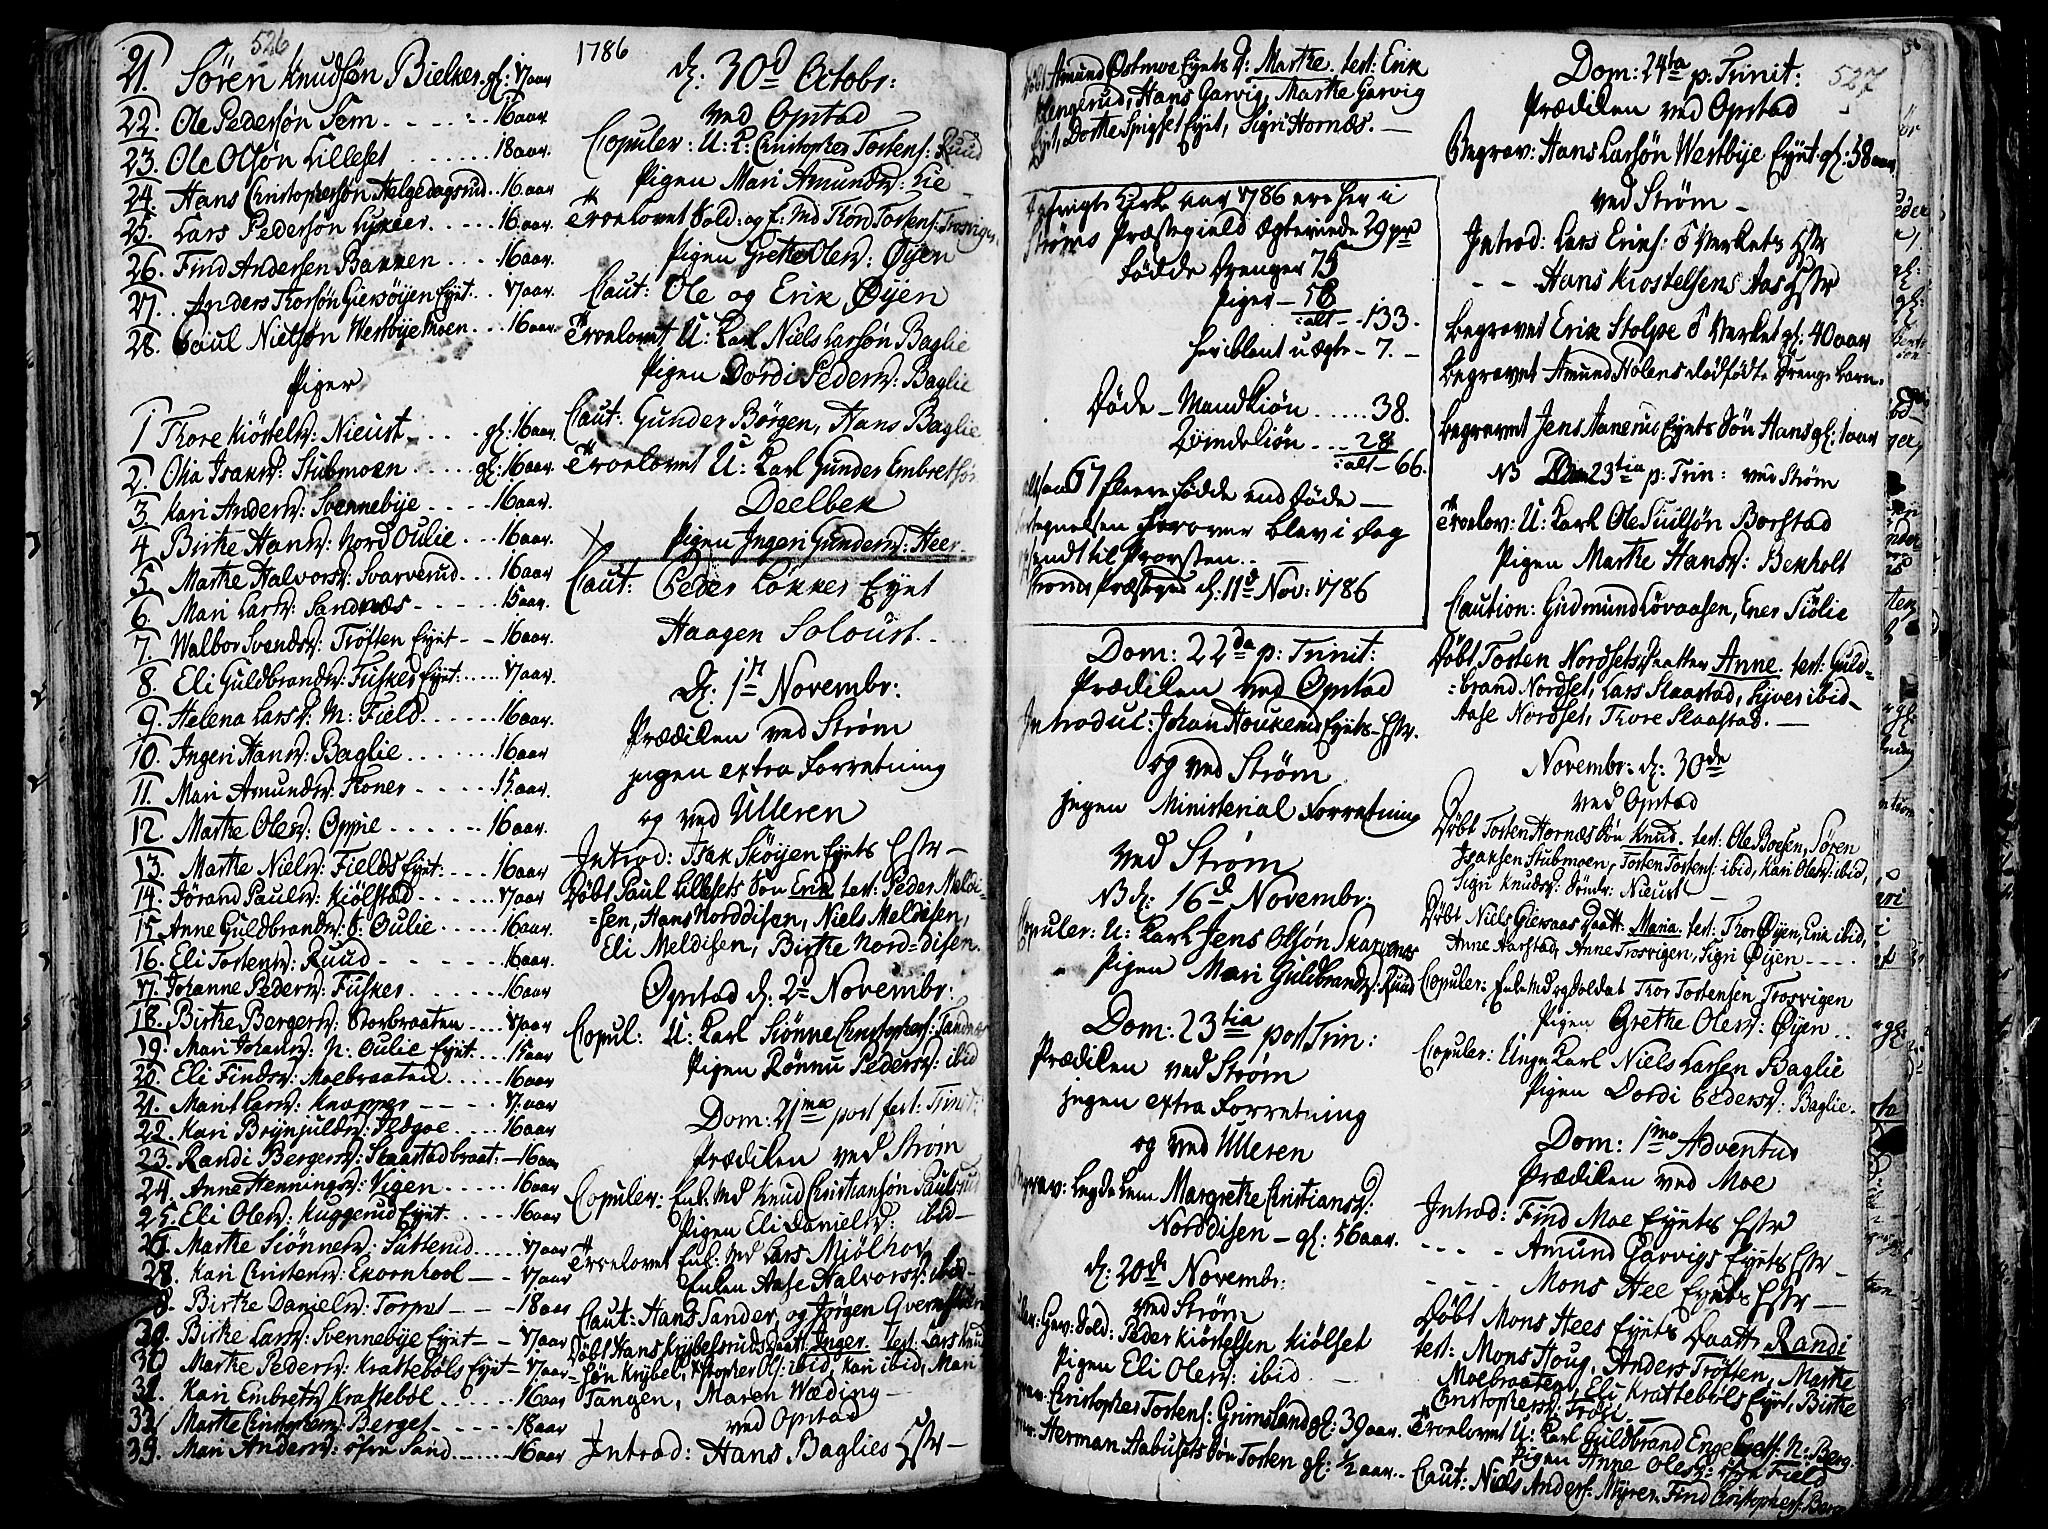 526
1786
21. Sören Knudsen Bielker gl: 17 aar
22. Ole Pedersön Sem 16 aar
23. Ole Olsön Lilleset 18 aar.
24. Hans Christophersön Helgedagsrud 16 aar
25. Lars Pedersön 16 aar.
26. Find Andersen Bakken 16 aar.
27. Anders Thorsön Giersöyen Eyet 17 aar.
28. Paul Nielsön Westbye Moen 16 aar
Piger
1 Thore Kiöstelsd: Nieust gl: 16 aar
2. Olia Isaksd: Stubmoen gl: 16 aar
3 Kari Andersd: Svennebye 16 aar.
4. Birthe Hansd: Nord Oulie 16 aar.
5. Marthe Halvorsd: Svarverud 16 aar
6. Mari Larsd: Sandnæs 15 aar.
7. Walbor Svendsd: Tröften Eyet 16 aar
8. Eli Guldbrandsd: Fusker Eyet 17 aar.
9. Helena Larsd: M: Field 16 aar
10. Ingeri Hansd: Baglie 16 aar
11. Mari Amundsd: Troner 15. aar.
12. Marthe Olesd: Oppie 16 aar.
13. Marthe Nielsd: Fields Eyet 16 aar
14. Jörand Paulsd: Kiölstad 17 aar
15. Anne Guldbrandsd: S: Oulie 16 aar.
16. Eli Tostensd: Ruud 16 aar.
17. Johanne Pedersd: Fusker 16 aar
18. Birthe Bergersd: Storbraaten 17 aar
19. Mari Johansd: N: Oulie Eyet 15 aar
20. Eli Findsd: Moebraaten 16 aar
21. Marit Larsd: Knapper 17. aar
22. Kari Brynjulds: 16 aar
23. Randi Bergersd: Slaastadbraat: 16 aar
24. Anne Henningsd: Vigen 16 aar
25. Eli Olesd: Kuggerud Eyet 16 aar
27. Marthe Siönnesd: Sätterud 17 aar
28. Kari Christensd: Ekornhool 17 aar
Birthe Danielsd: Torpet 18 aar
Birthe Larsd: Svennebye Eyet 17 aar
30 Marthe Pedersd: Krattebøls Eyet 17 aar
31. Kari Embretsd: Krattebøl 16 aar
32. Marthe Christophersd: Berget 18 aar
33. Mari Andersd: öfre Sand 16 aar
d: 30d Octobr:
ved Opstad
Copuler: U: K: Christopher Tostens: Ruud
Pigen Mari Amundsd: Lie
Troelovet Sold: og E: Md Thord Tostens: Trosvigen
Pigen Grethe Olesd: Öyen
Caut: Ole og Erik Öyen
Troelovet U: Karl Niels Larsön Baglie
Pigen Dordi Pedersd: Baglie
Caut: Gunder Börgen, Hans Baglie
Troelovet U: Karl Gunder Embretsön
Deelbek
Pigen Ingeri Gundersd: Heer
Caut: Peder Løkker Eyet
Haagen Soloust.
d: 1st Novembr:
Prædiken ved Strøm
jngen extra Forretning
og ved Ulleren
Introd: Isak Skøyen Eyets Hstr
Döbt Paul Lillesets Sön Erik test: Peder Meldi-
=sen, Hans Norddisen, Niels Meldisen,
Eli Meldisen, Birthe Nord=disen.
Opstad d: 2d Novembr:
Copul: U: Karl Siönne Christophers: Sandnæs
Pigen Rönnu Pedersd: ibid
Dom: 21ma post fest: Trinit:
Prædiken ved Strøm
Copuler: Enk: Md Knud Christiansön Paulsrud
Pigen Eli Danielsd: ibid
Troelovet Enk: Md Lars Miölhov
Enken Aase Halvorsd: ibid
Caut: Hans Sander, og Jørgen
Döbt Hans Krybelsruds Daatt: Inger. test: Lars Knud
sön Krybel, Christopher Ols: ibid, Kari ibid, Mari
Tangen, Maren Wæding
ved Opstad
Introd: Hans Baglies Hstr
527
Döbt Amund Østmoe Eyets D: Marthe. test: Erik
Hengerud, Hans Garvig, Marthe Garvig
Eyet, Dorthe Spigset Eyet, Sigri Hornæs.
Kirke aar 1786 ere her i
Ströms Præstegield Ægteviede 29 par
Fødde Drenger 75
Piger 58
ialt 133.
heriblant uægte 7.
Døde Mandkiön 38.
Qvindekiön 28
ialt 66.
altsaa 67 fleere Fødde end Døde
Fortegnelsen herover blev i dag
sendt til Provsten.
Strøms Præstegrd d: 11d Nov: 1786
Dom: 22da p: Trinit:
Prædiken ved Opstad
Introdul: Johan Houkerud Eyets Hstr.
og ved Strøm
jngen Ministerial Forretning
ved Strøm
NB d: 16d November:
Copuler: U: Karl Jens Olsön Skarpnæs
Pigen Mari Guldbrandsd: Ruud
Dom: 23tia post Trin:
Prædiken ved Strøm
jngen extra Forretning
og ved Ulleren
Begrav: Legdelem Margrethe Christiansd:
Norddisen gl: 56 aar.
d: 20de Novembr:
ved Strøm
Gev: Sold: Peder Kiöstelsen Kiölset
Pigen Eli Olesd: ibid
Christopher Tostens: Grimsland gl: 39 aar.
Herman Aabusets Sön Tosten gl: ½ aar.
Dom: 24ta p: Trinit:
Prædiken ved Opstad
Begrav: Hans Larsön Westbye Eyet gl: 58 aar
ved Strøm
Introd: Lars Eriks: S Verkets Hstr
Hans Kiostelsens Aas Hstr
Begravet Erik Stolpe S Verket gl: 40 aar
Begravet Amund Holens dødfødte Drenge Barn.
Begravet Jens Aanerud Eyets Sön Hans gl: 1 aar
NB Dom 23tia p: Trin: ved Strøm
Troelov: U: Karl Ole Siulsön Borstad
Pigen Marthe Hansd: Bekholt
Caution: Gudmund Lövaasen, Ener Siölie
Döbt Tosten Nordsets Daatter Anne. test: Guld-
=brand Nordset, Lars Slaastad, Syver ibid
Aase Nordset, Thore Slaastad.
Novembr: d: 30de
ved Opstad
Döbt Tosten Hornæs Sön Knud. test: Ole Boesen, Sören
Isaksen Stubmoen, Tosten Tostens: ibid, Kari Olesd: ibid,
Sigri Knudsd: Sönder: Nieust
Döbt Niels Giersaas Daatt: Maria. test: Thor Öyen, Erik ibid,
Anne Aarstad, Anne Trosvigen, Sigri Öyen
Copuler: Enke Md og Soldat Thor Tostensen Trosvigen
Pigen Grethe Olesd: Öyen
Copuler: Unge Karl Niels Larsen Baglie
Pigen Dordi Pedersd: Baglie.
Dom: 1ma Adventus
Prædiken ved Moe
Introd: Find Moe Eyets Hstr
Amund Garvigs Eyets Hstr
Mons Hee Eyets Hstr
Döbt Mons Hees Eyets Daatt: Randi
test: Mons Houg, Anders Tröften, Marthe
Moebraaten, Eli Krattebøls Eyet, Birthe
Christophersd: Froyi.
Troelovet U: Karl Guldbrand N: Berg.
Pigen Anne Olesd: öfre Field
Caut: Niels Anders: Myrer, Find Christophers: Berg